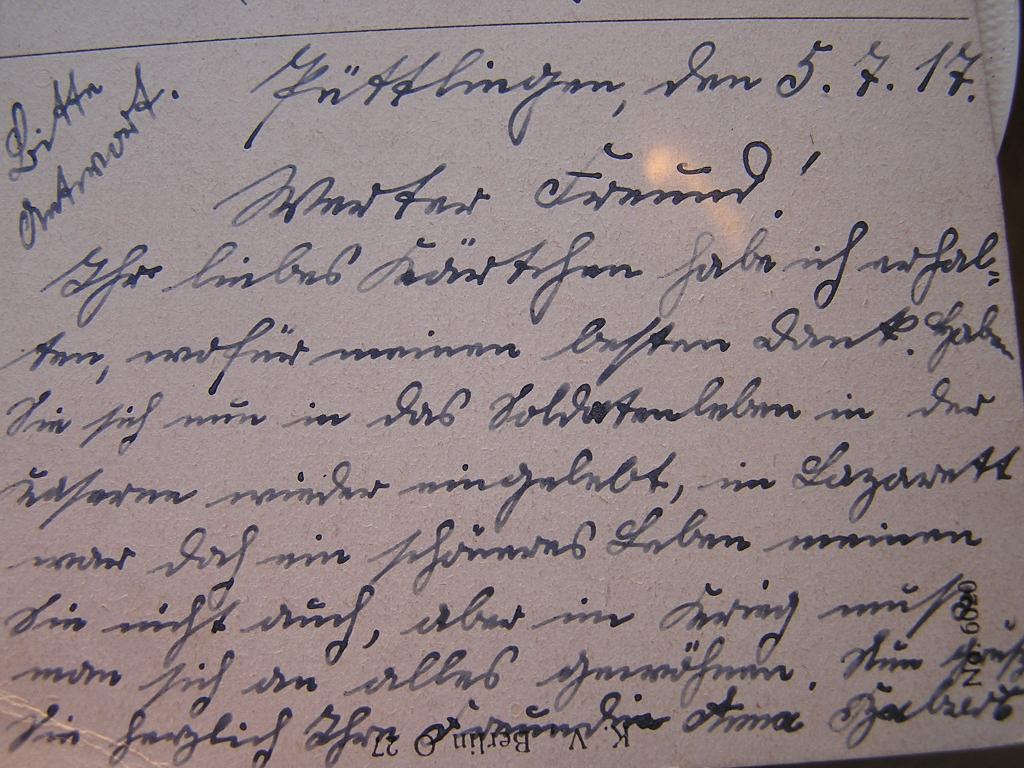 Bitte
Antwort.
Püttlingen, den 5. 7. 17.
Werter Freund!
Ihr liebes Kärtchen habe ich erhal-
ten, wofür meinen besten Dank. Haben
Sie sich nun in das Soldatenleben in der
Kaserne wieder eingelebt, im Lazarett
war doch ein schöneres Leben meinen
Sie nicht auch, aber im Krieg muß
man sich an alles gewöhnen. Nun grüßt
Sie herzlich Ihre Freundin Anna
K. V. Berlin O 27
No. 6020